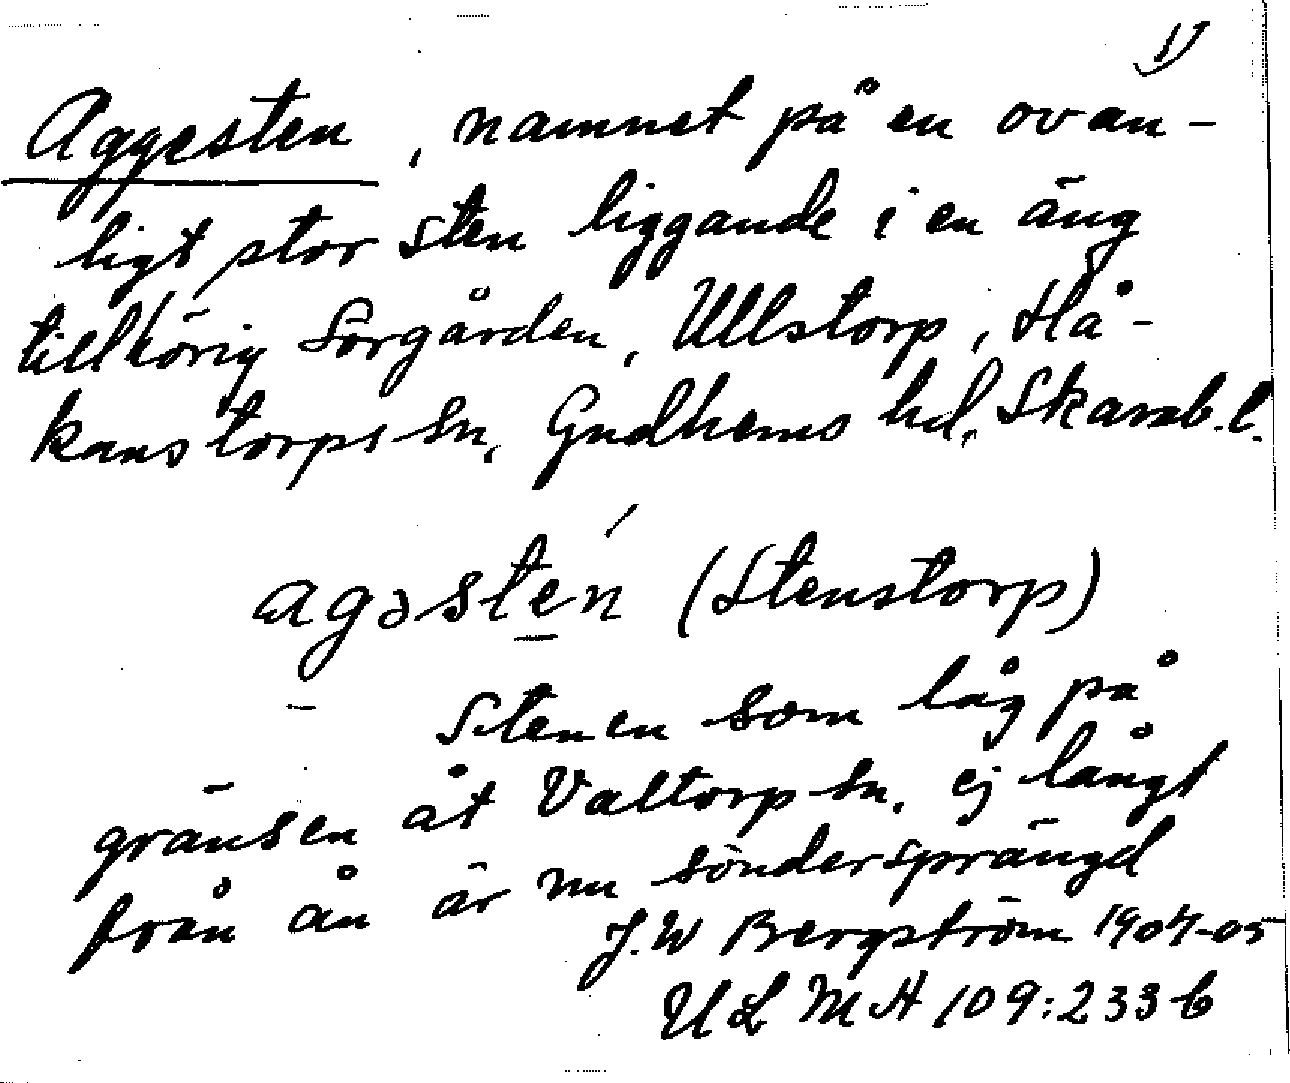 1)
Aggesten, namnet på en ovan-
ligt stor sten liggande i en äng
tillhörig Sörgården, Ullstorp, Hå-
kanstorps sn, Gudhems hd, Skarab. l.
agəstén (Stenstorp)
Stenen som låg på
gränsen åt Valtorp sn. ej långt
från ån är nu söndersprängd
J.W Bergström 1904-05
ULMA 109:233 b